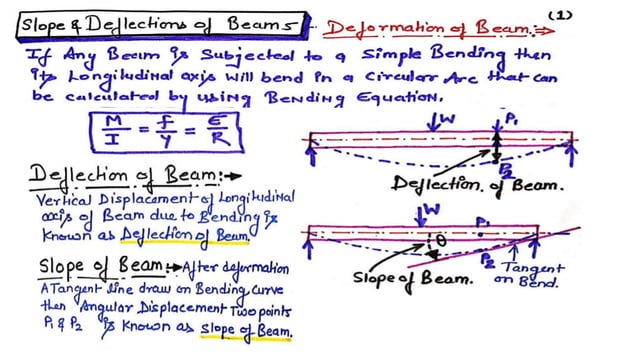 Slope & Deflections of Beams - Deformation of Beam:→ (1)
If Any Beam is Subjected to a simple Bending then
its Longitudinal axis will bend in a Circular Arc that can
be calculated by using Bending Equation.
M/I = f/y = E/R
W P1
P2
Deflection of Beam.
Deflection of Beam:→
Vertical Displacement of Longitudinal
axis of Beam due to Bending is
Known as Deflection of Beam
W P1
θ
P2
Slope of Beam.
Tangent
on Bend.
Slope of Beam:→ After deformation
A Tangent line draw on Bending Curve
then Angular Displacement Two points
P1 & P2 is Known as Slope of Beam.